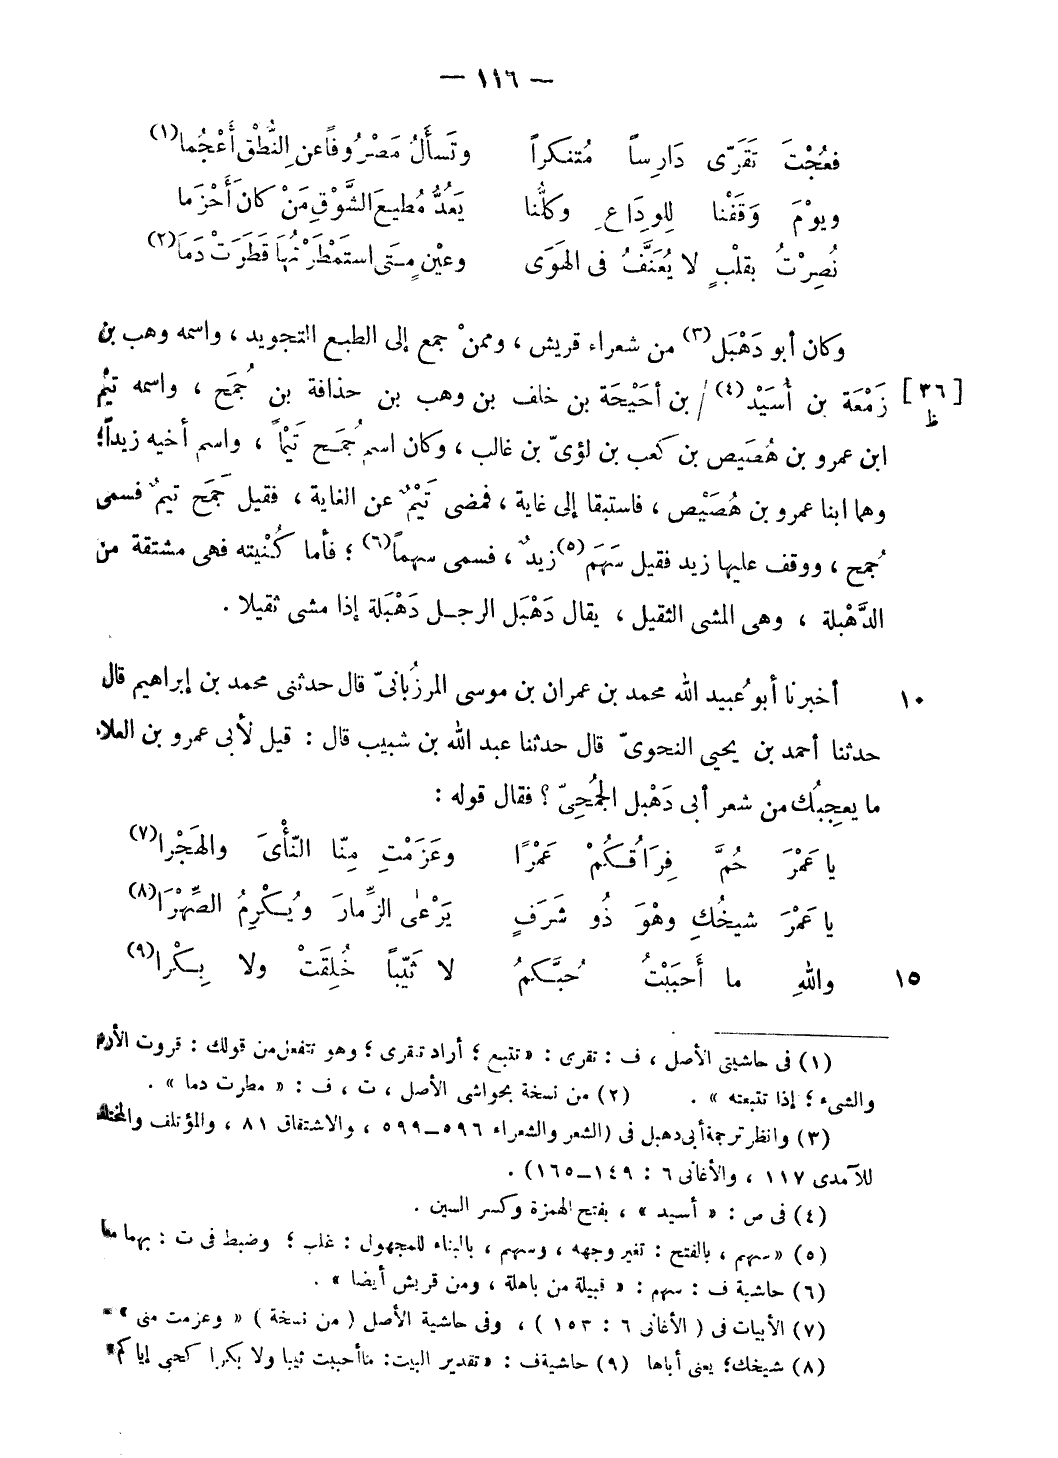 — ١١٦ —
فعُجْتَ تَقَرّى دَارِساً مُتنكراً وتَسأَلُ مَصْرُوفاً عن النُّطْقِ أَعْجُما(١)
ويوْمَ وَقَفْنا لِلودِاعِ وكلُّنا يَعُدُّ مُطيعَ الشَّوْقِ مَنْ كانَ أَحْزَما
نُصِرْتُ بقلْبٍ لا يُعَنَّفُ فى الهَوَى وعيْنٍ متَى استَمْطَرْتُها قَطَرَتْ دَمَا(٢)
وكان أبو دَهْبَل(٣) من شعراء قريش ، وممنْ جمع إلى الطبع التجويد ، واسمه وهب بن
زَمْعَة بن أُسَيْد(٤) / بن أحَيْحَة بن خلف بن وهب بن حذافة بن جُمَح ، واسمه تيْم [٣٦ ظ]
ابن عمرو بن هُصَيص بن كعب بن لؤىّ بن غالب ، وكان اسم جُمَح تَيْماً ، واسم أخيه زيداً؛
وهما ابنا عمرو بن هُصَيْص ، فاستبقا إلى غاية ، فمضى تَيْمٌ عن الغاية ، فقيل جَمَح تيمٌ فسمى
جُمح ، ووقف عليها زيد فقيل سَهَمَ(٥) زيدٌ ، فسمى سهماً(٦) ؛ فأما كُنْيته فهى مشتقة من
الدَّهْبلة ، وهى المشى الثقيل ، يقال دَهْبَل الرجل دَهْبَلة إذا مشى ثقيلا .
أخبرنا أبو عُبيد الله محمد بن عمران بن موسى المرزُبانىّ قال حدثنى محمد بن إبراهيم قال ١٠
حدثنا أحمد بن يحيى النحوىّ قال حدثنا عبد الله بن شبيب قال : قيل لأبى عمرو بن العلاء
ما يعجِبُك من شعر أبى دَهْبل الجُمَحِىّ ؟ فقال قوله :
يا عَمْرَ حُمَّ فِرَاقُكُمْ عَمْرًا وعَزَمْتِ مِنّا النّأْىَ والهَجْرا(٧)
يا عَمْرَ شيخُكِ وهْوَ ذُو شَرَفٍ يَرْعٰى الذِّمارَ ويُكْرِمُ الصِّهْرَا(٨)
واللهِ ما أَحبَبْتُ حُبَّكمُ لا ثيّباً خُلِقَتْ ولا بِكْرا(٩) ١٥
(١) فى حاشيتى الأصل ، ف : تقرى : «تتبع ؛ أراد تتقرى ؛ وهو تتفعل من قولك : قروت الأرض
والشىء ؛ إذا تتبعته » . (٢) من نسخة بحواشى الأصل ، ت ، ف : « مطرت دما » .
(٣) وانظر ترجمة أبى دهبل فى (الشعر والشعراء ٥٩٦ــ٥٩٩ ، والاشتقاق ٨١ ، والمؤتلف والمختلف
للآمدى ١١٧ ، والأغانى ٦ : ١٤٩ــ١٦٥) .
(٤) فى ص : « أسيد » ، بفتح الهمزة وكسر السين .
(٥) «سهم ، بالفتح : تغير وجهه ، وسهم ، بالبناء للمجهول : غلب ؛ وضبط فى ت : بهما معا
(٦) حاشية ف : سهم : « قبيلة من باهلة ، ومن قريش أيضا » .
(٧) الأبيات فى ( الأغانى ٦ : ١٥٣ ) ، وفى حاشية الأصل ( من نسخة ) « وعزمت منى » .
(٨) شيخك؛ يعنى أباها (٩) حاشية ف : «تقدير البيت: ما أحببت ثيبا ولا بكرا كحبى إياكم»